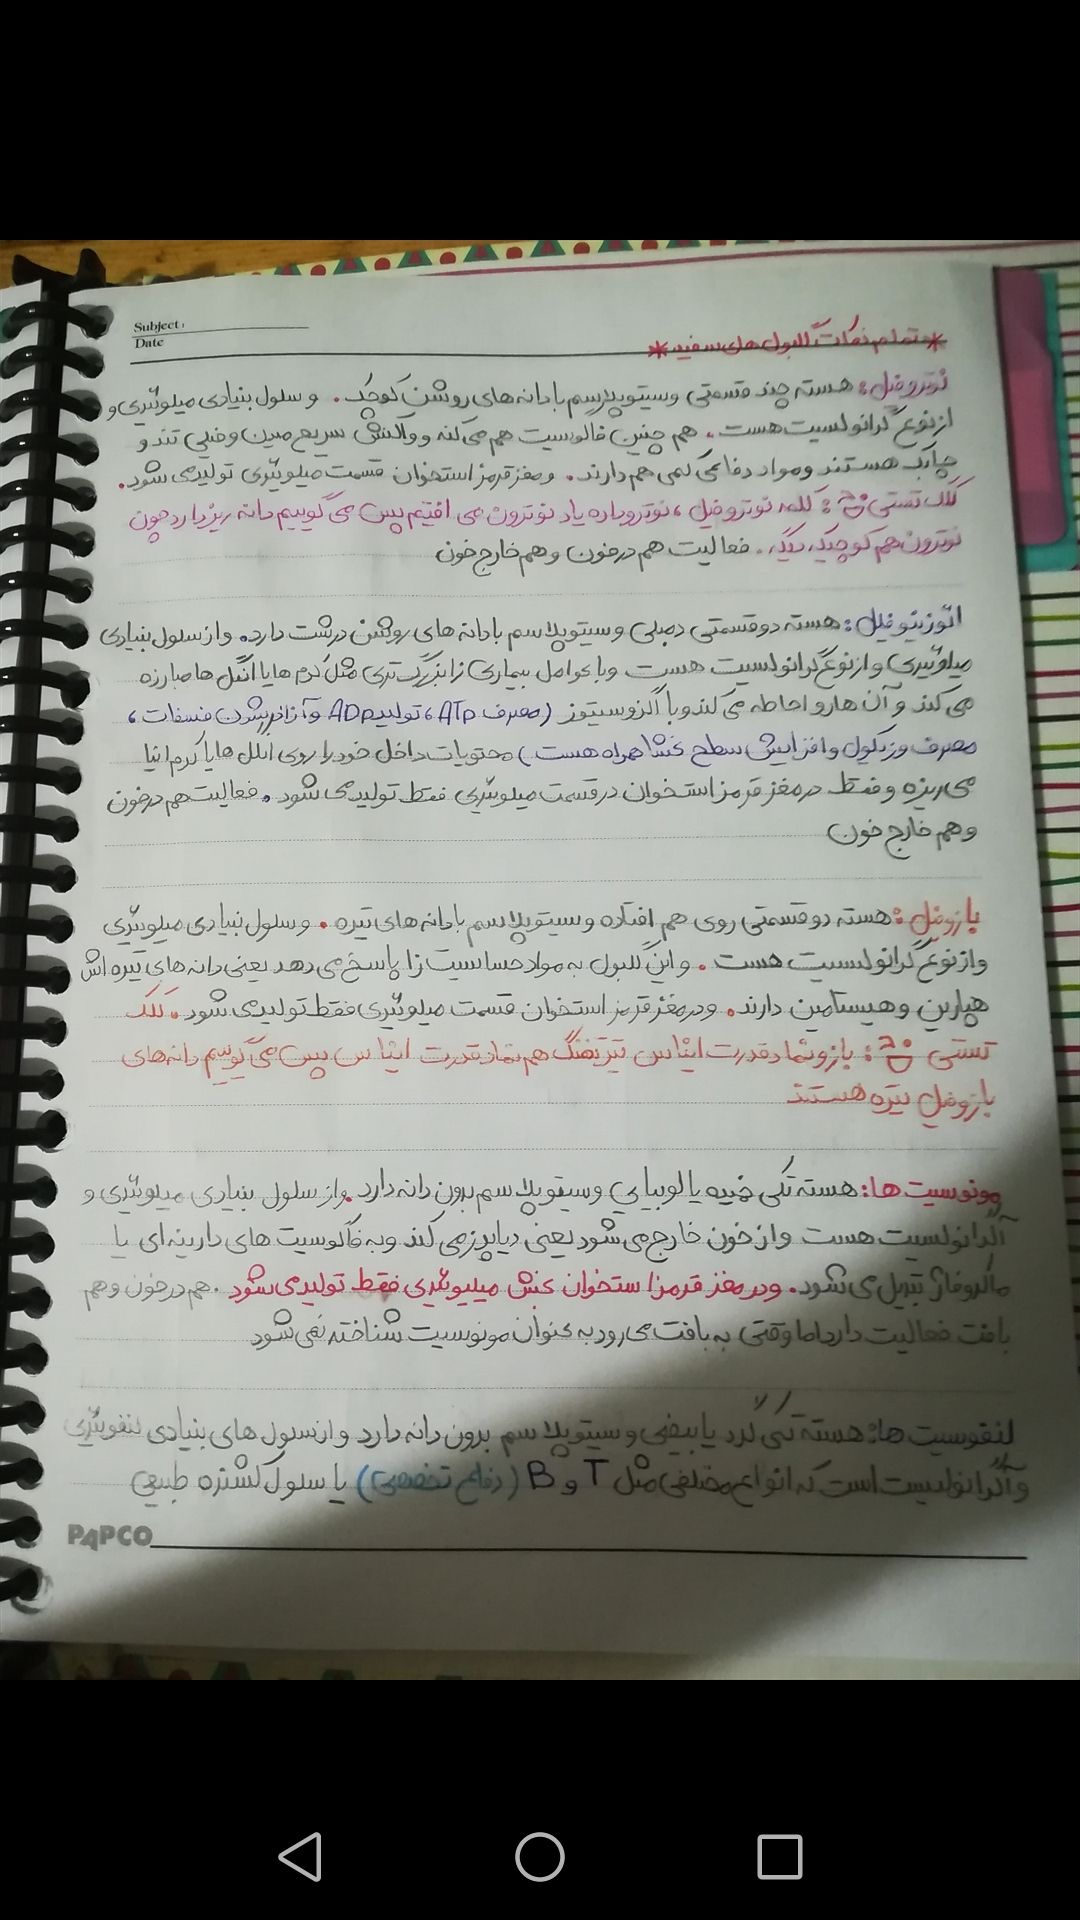 Subject:
Date
*تمام نکات گلبول های سفید*
نوتروفیل: هسته چند قسمتی و سیتوپلاسم با دانه های روشن کوچک. و سلول بنیادی میلوئیدی و
از نوع گرانولسیت هست. هم چنین فاگوسیت هم می کنه و واکنش سریع میدن و خیلی تند و
چابک هستند و مواد دفاعی کمی هم دارند. و مغز قرمز استخوان قسمت میلوئیدی تولید می شود.
کلک تستی: کلمه نوتروفیل، نوترو ماده یاد نوترون می افتیم پس می گوییم دانه ریز دارد چون
نوترون هم کوچیکه دیگه. فعالیت هم در خون و هم خارج خون
ائوزینوفیل: هسته دو قسمتی دمبلی و سیتوپلاسم با دانه های روشن درشت دارد. و از سلول بنیادی
میلوئیدی و از نوع گرانولسیت هست و با عوامل بیماری زا بزرگ تری مثل کرم ها یا انگل ها مبارزه
می کند و آن ها رو احاطه می کند و با اگزوسیتوز (مصرف ATP، تولید ADP و آزاد شدن فسفات،
مصرف وزیکول و افزایش سطح غشا همراه هست) محتویات داخل خود را روی انگل ها یا کرم اینا
می ریزه و فقط در مغز قرمز استخوان در قسمت میلوئیدی فقط تولید می شود. فعالیت هم در خون
و هم خارج خون
بازوفیل: هسته دو قسمتی روی هم افتاده و سیتوپلاسم با دانه های تیره. و سلول بنیادی میلوئیدی
و از نوع گرانولسیت هست. و این گلبول به مواد حساسیت زا پاسخ می دهد یعنی دانه های تیره اش
هپارین و هیستامین دارند. و در مغز قرمز استخوان قسمت میلوئیدی فقط تولید می شود. کلک
تستی: بازو نماد قدرت ایناس تیر تفنگ هم نماد قدرت ایناس پس می گوییم دانه های
بازوفیل تیره هستند
مونوسیت ها: هسته تکی خمیده یا لوبیایی و سیتوپلاسم بدون دانه دارد. و از سلول بنیادی میلوئیدی و
آگرانولسیت هست و از خون خارج می شود یعنی دیاپدز می کند و به فاگوسیت های دارینه ای یا
ماکروفاژ تبدیل می شود. و در مغز قرمز استخوان بخش میلیوئیدی فقط تولید می شود. هم در خون و هم
بافت فعالیت دارد اما وقتی به بافت می رود به عنوان مونوسیت شناخته نمی شود
لنفوسیت ها: هسته تکی گرد یا بیضی و سیتوپلاسم بدون دانه دارد و از سلول های بنیادی لنفوئیدی
و آگرانولسیت است که انواع مختلفی مثل T و B (دفاع تخصصی) یا سلول کشنده طبیعی
PAPCO